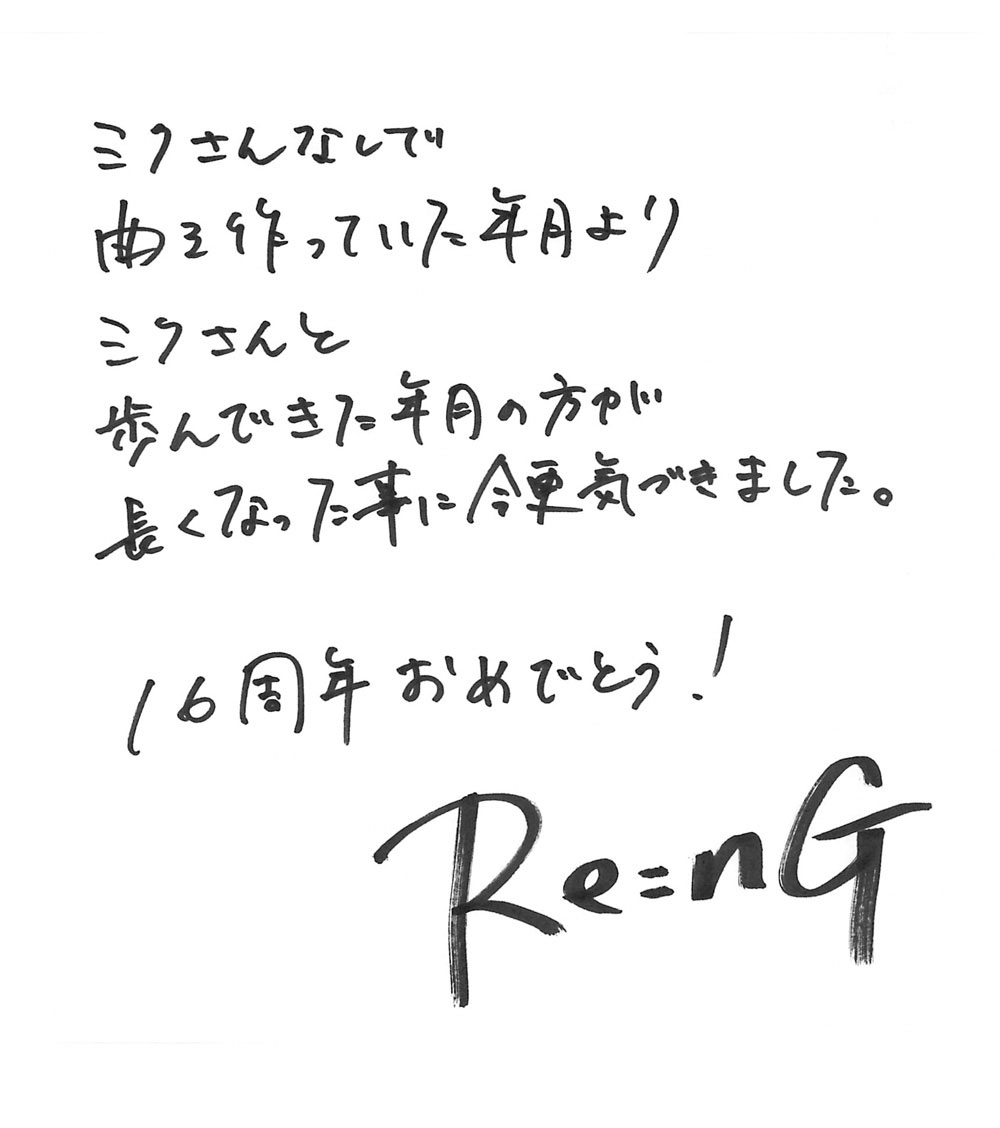 ミクさんなしで
曲を作っていた年月より
ミクさんと
歩んできた年月の方が
長くなった事に今更気づきました。
16周年おめでとう!
Re=nG